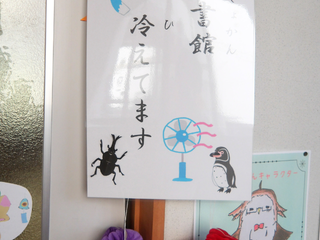 書館
冷えてます
ひ